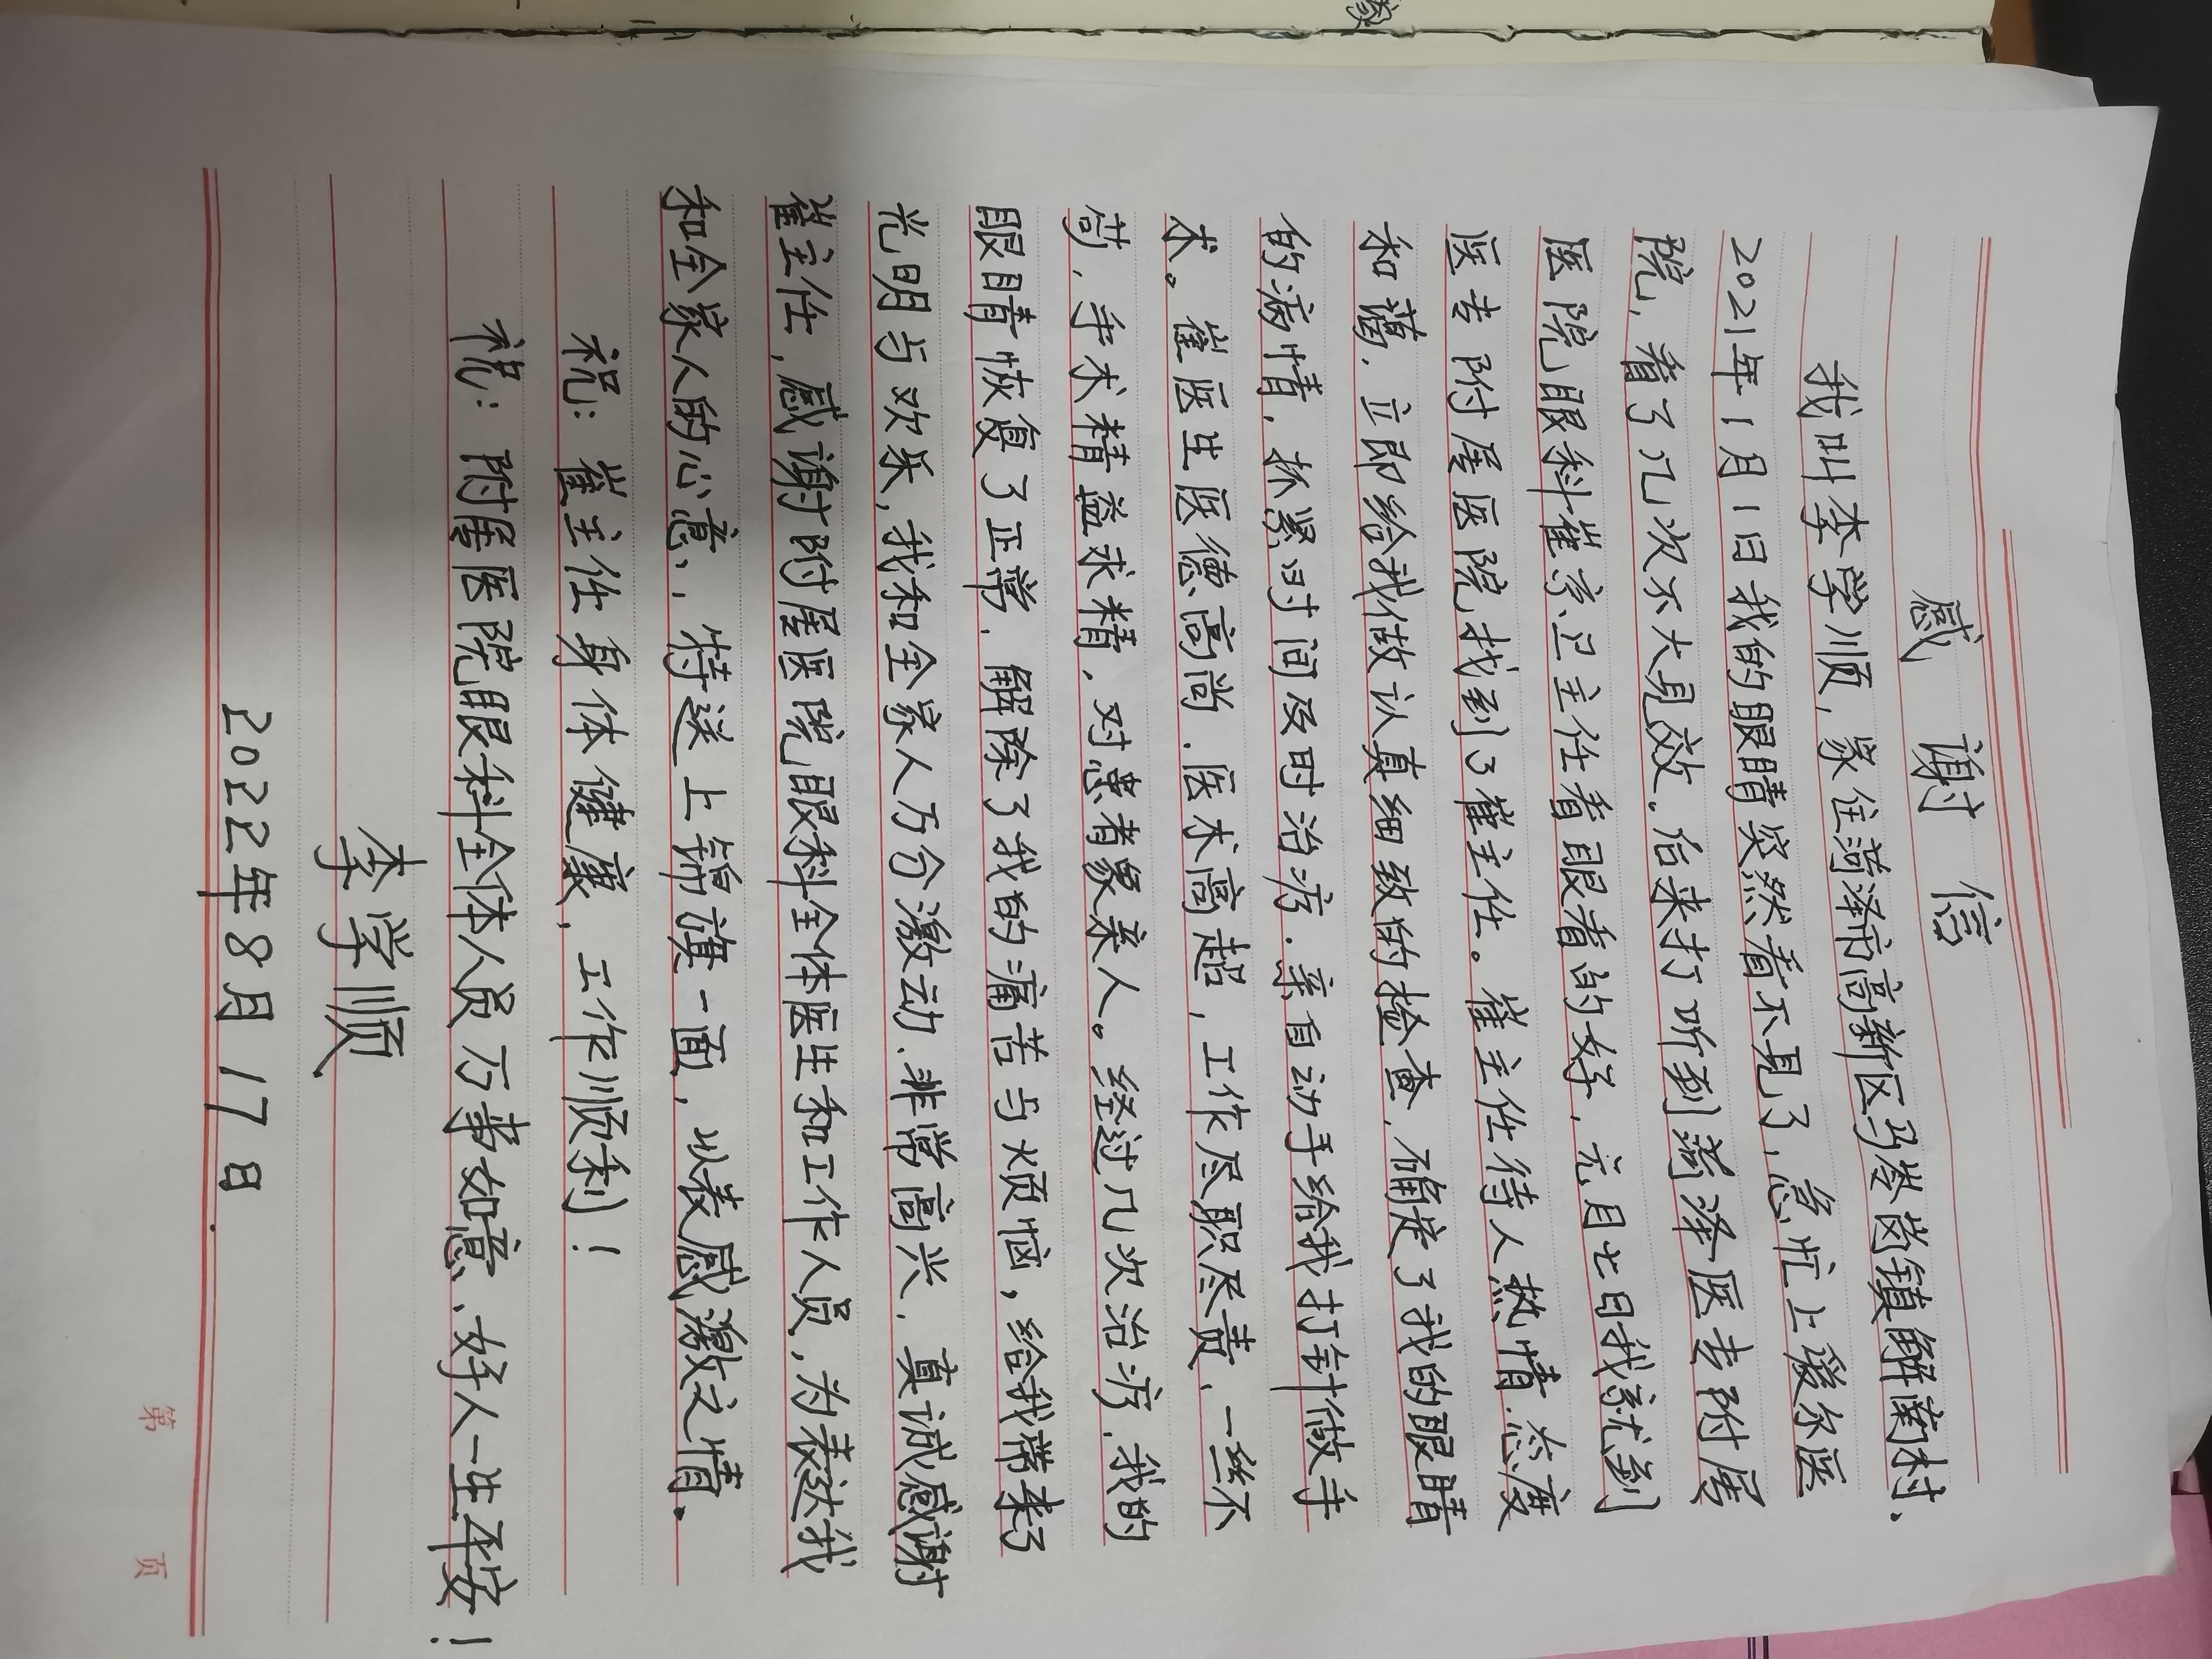 感谢信
我叫李学顺，家住菏泽市高新区马岭岗镇解南村、
2021年1月1日我的眼睛突然看不见了，急忙上爱尔医
院，看了几次不大见效．后来打听到菏泽医专附属
医院眼科崔京卫主任看眼看的好，元月七日我就到
医专附属医院找到了崔主任。崔主任待人热情．态度
和蔼．立即给我做认真细致的检查，确定了我的眼睛
的病情，抓紧时间及时治疗．亲自动手给我打针做手
术。崔医生医德高尚．医术高超，工作尽职尽责、一丝不
苟，手术精益求精，对患者象亲人。经过几次治疗，我的
眼睛恢复了正常．解除了我的痛苦与烦恼，给我带来了
光明与欢乐，我和全家人万分激动．非常高兴．真诚感谢
崔主任，感谢附属医院眼科全体医生和工作人员，为表达我
和全家人的心意，特送上锦旗一面，以表感激之情。
祝：崔主任身体健康，工作顺利！
祝：附居医院眼科全体人员万事如意、好人一生平安！
李学顺
2022年8月17日．
第 页